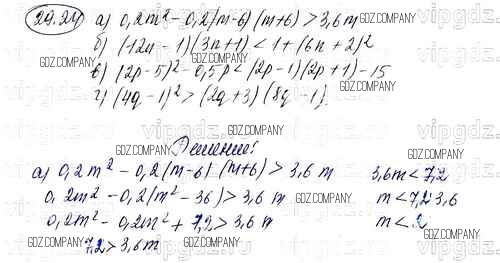 29.24) а) 0,2m² - 0,2(m-6)(m+6) > 3,6m
б) (12n - 1)(3n+1) < 1 + (6n + 2)²
в) (2p - 5)² - 0,5p < (2p - 1)(2p + 1) - 15
г) (4q - 1)² > (2q + 3)(8q - 1)
GDZ.COMPANY
Решение:
а) 0,2m² - 0,2(m-6)·(m+6) > 3,6m 3,6m < 7,2
0,2m² - 0,2(m² - 36) > 3,6m m < 7,2:3,6
0,2m² - 0,2m² + 7,2 > 3,6m m < 2
7,2 > 3,6m